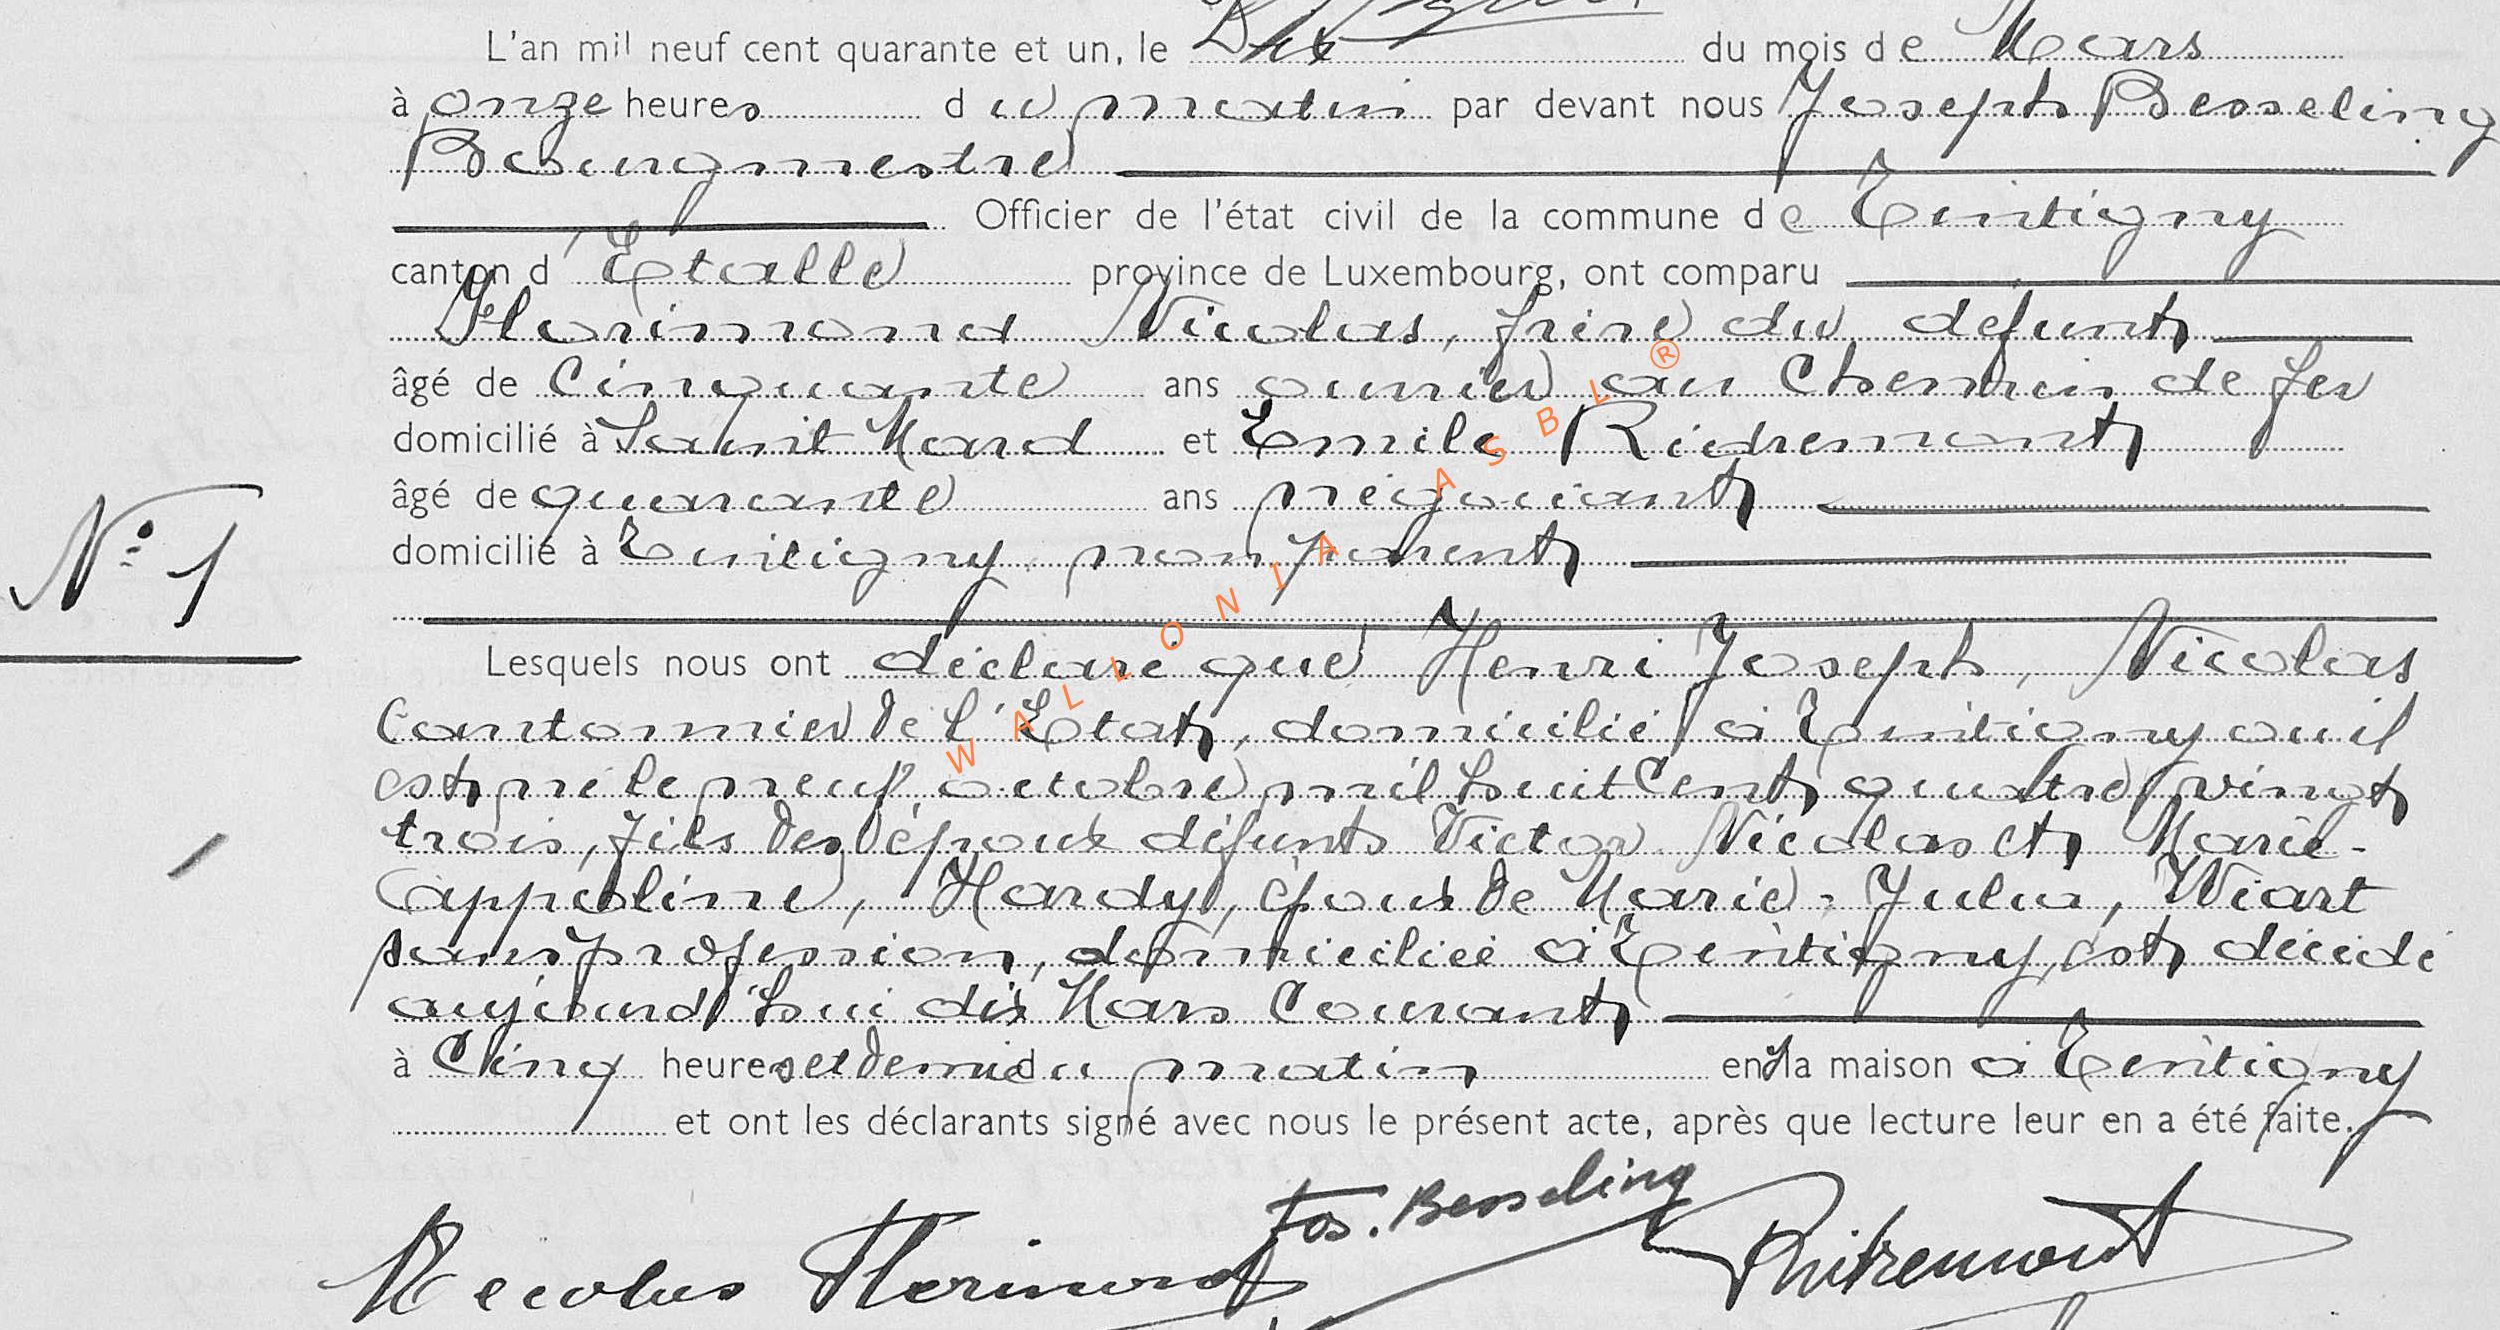 L'an mil neuf cent quarante et un, le Dix du mois de Mars
à onze heures du matin par devant nous Joseph Besseling
Bourgmestre
Officier de l'état civil de la commune de Tintigny
canton d'Etalle province de Luxembourg, ont comparu
Florimond Nicolas, frère du défunt
âgé de Cinquante ans ouvrier au Chemin de fer
domicilié à Saint Mard et Emile
âgé de quarante ans négociant
domicilié à Tintigny, non parent
N° 1
Lesquels nous ont déclaré que Henri Joseph, Nicolas
Cantonnier de l'Etat, domicilié à Tintigny ou il
est né le neuf octobre mil huit Cent quatre vingt
trois, fils des époux défunts Victor Nicolas et Marie-
Appoline, Hardy, époux de Marie-Julia, Wiart
sans profession, domiciliée à Tintigny, est décédé
aujourd'hui dix Mars Courant
à Cinq heures et demie du matin en sa maison à Tintigny
et ont les déclarants signé avec nous le présent acte, après que lecture leur en a été faite.
Jos. Besseling
Nicolas Florimond
WALLONIA ASBL ®